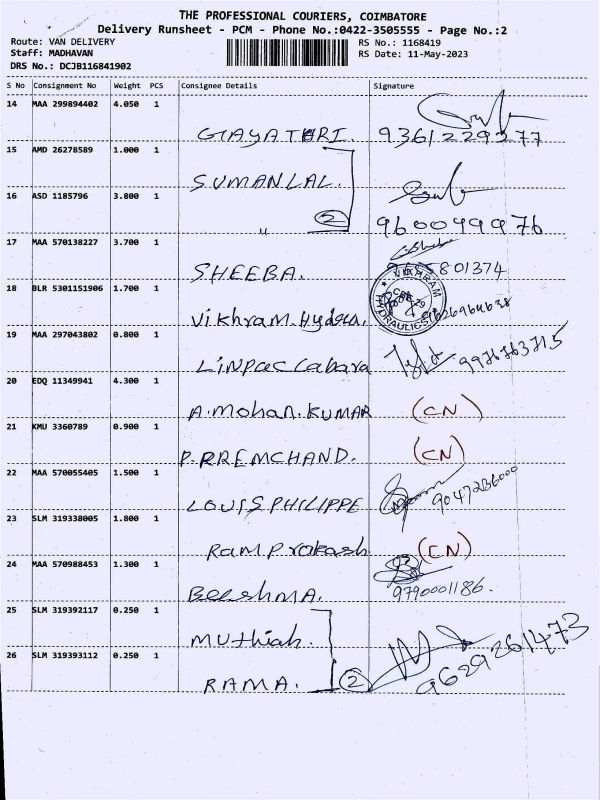 THE PROFESSIONAL COURIERS, COIMBATORE
Delivery Runsheet - PCM - Phone No.:0422-3505555 - Page No.:2
Route: VAN DELIVERY
RS No.: 1168419
Staff: MADHAVAN
RS Date: 11-May-2023
DRS No.: DCJB116841902
S No Consignment No Weight PCS Consignee Details Signature
14 MAA 299894402 4.050 1
GAYATHRI. 9361229277
15 AMD 26278589 1.000 1
SUMANLAL.
16 ASD 1185796 3.800 1
" 2 9600499976
17 MAA 570138227 3.700 1
SHEEBA. 801374
18 BLR 5301151906 1.700 1
VIKHRAM HYDRAULICS
Vikhram. Hydra.
19 MAA 297043802 0.800 1
Linpac Labara 9976763715
20 EDQ 11349941 4.300 1
A. Mohan. KUMAR (CN)
21 KMU 3360789 0.900 1
P. RREMCHAND. (CN)
22 MAA 570055405 1.500 1
LOUIS PHILIPPE 9047286000
23 SLM 319338005 1.800 1
Ram Prakash (CN)
24 MAA 570988453 1.300 1
BeeshMA. 9790001186.
25 SLM 319392117 0.250 1
Muthiah.
26 SLM 319393112 0.250 1
RAMA. 2 9629261473